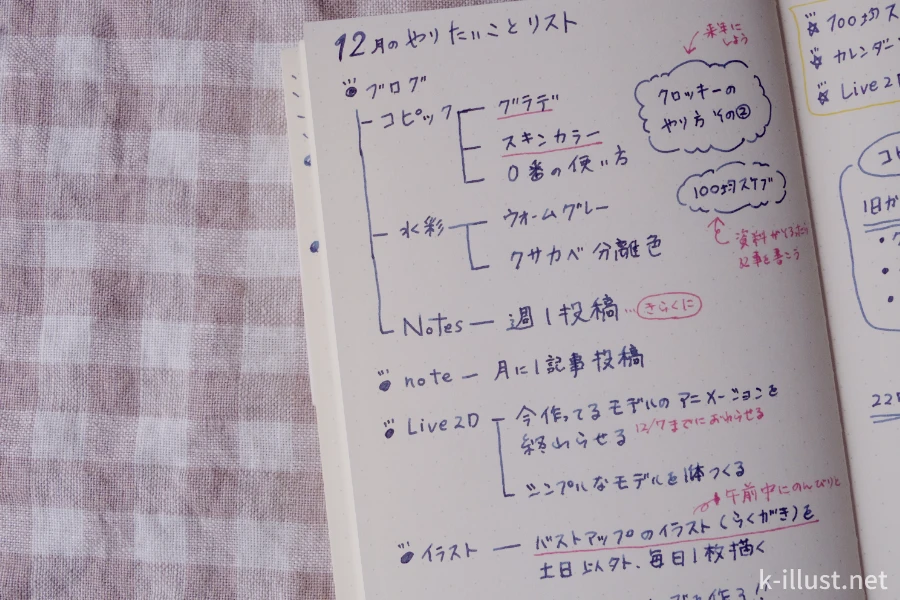 12月のやりたいことリスト
来年にしよう
ブログ
コピック
グラデ
スキンカラー
0番の使い方
クロッキーの
やり方 その②
100均スケブ
水彩
ウォームグレー
クサカベ 分離色
記事を書こう
Notes — 週1投稿 … きらくに
note — 月に1記事投稿
Live2D
今作ってるモデルのアニメーションを
終わらせる 12/7までにおわらせる
シンプルなモデルを1体つくる
午前中にのんびりと
イラスト — バストアップのイラスト(らくがき)を
土日以外、毎日1枚描く
100均ス
カレンダー
Live2D
1日が
k-illust.net